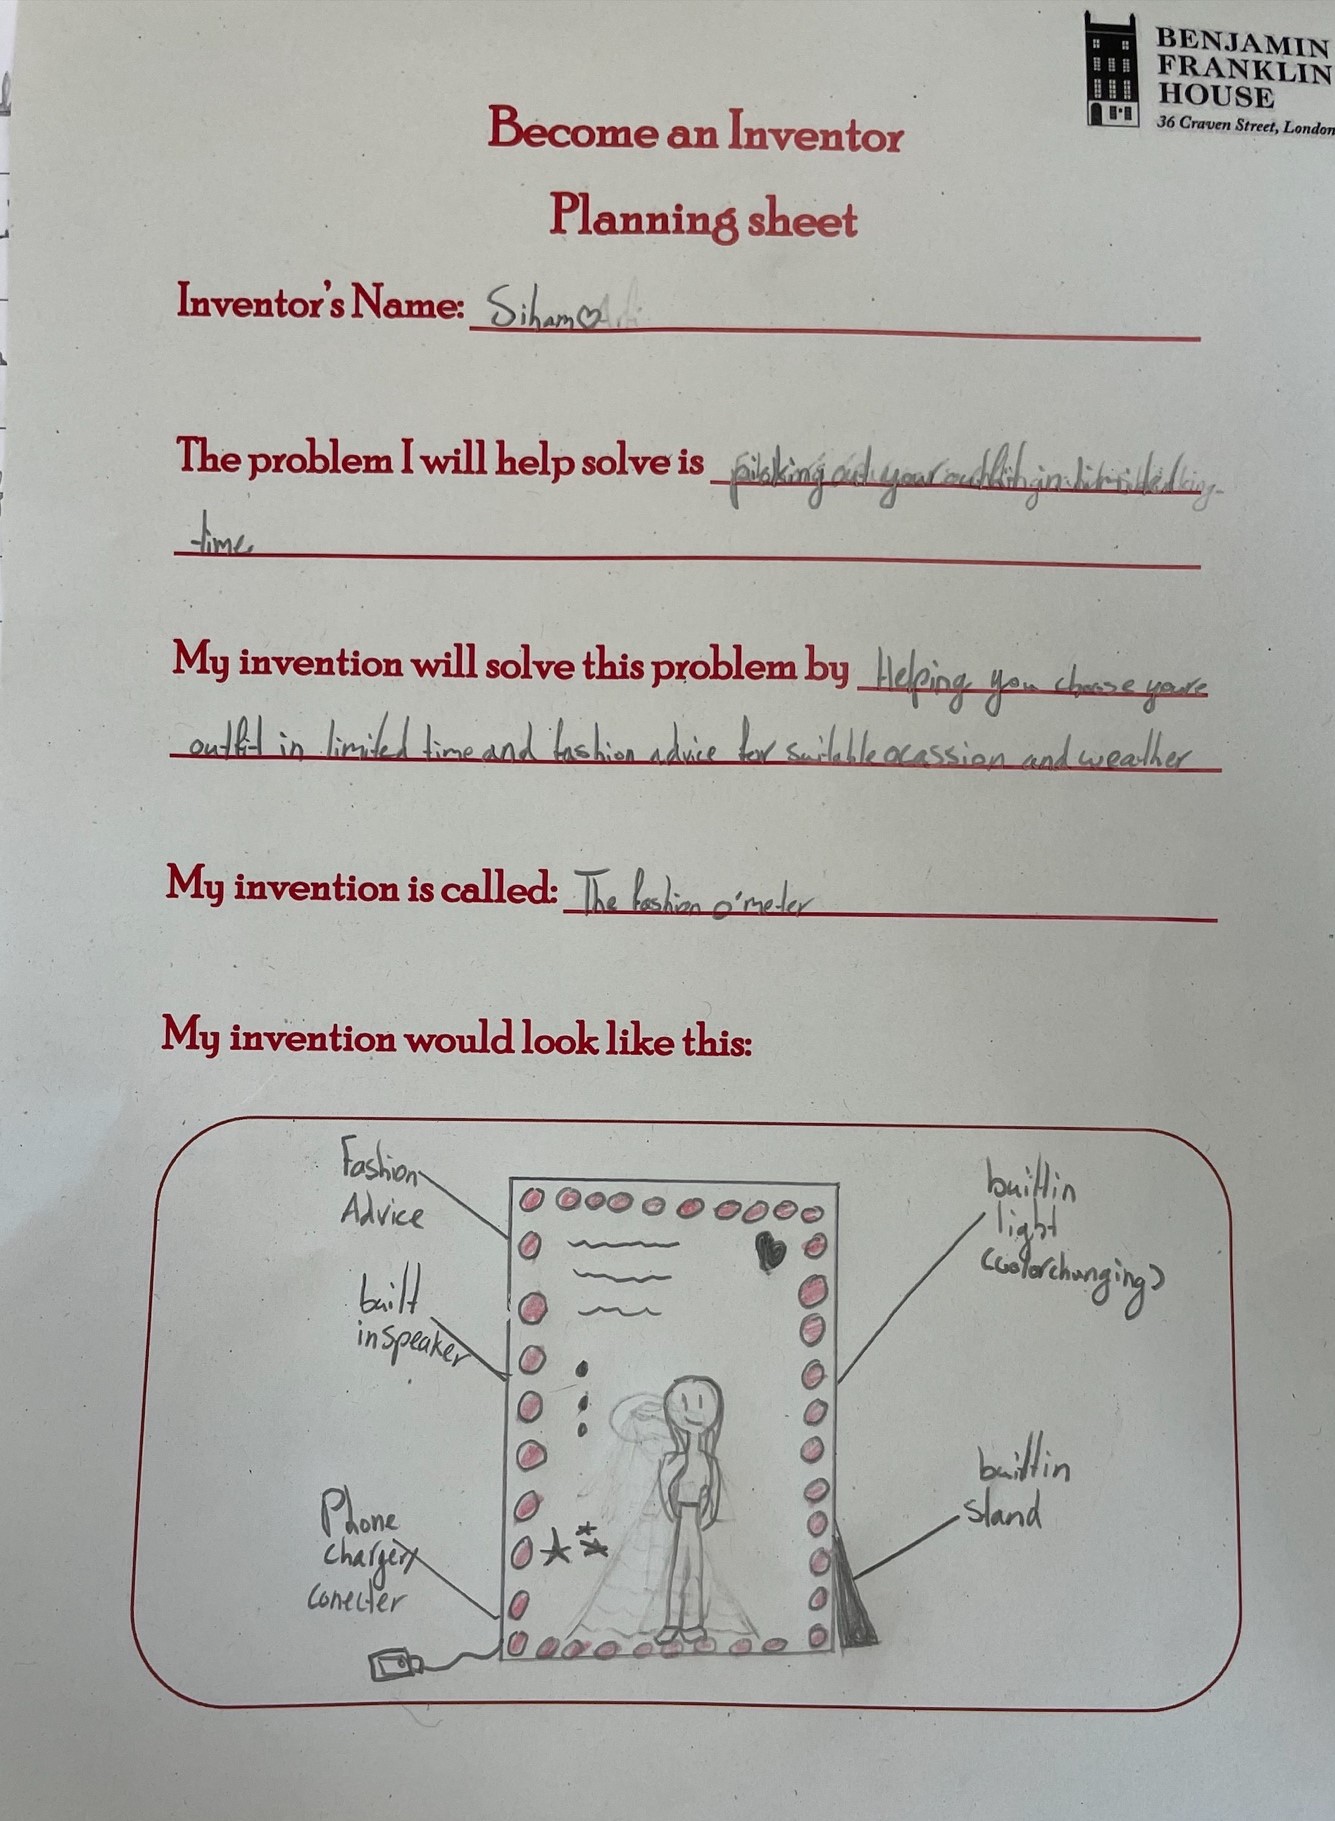 BENJAMIN
FRANKLIN
HOUSE
36 Craven Street, London
Become an Inventor
Planning sheet
Inventor's Name: Siham♡
The problem I will help solve is picking out your outfit in limited
time
My invention will solve this problem by Helping you choose youre
outfit in limited time and fashion advice for suitable ocassion and weather
My invention is called: The fashion o'meter
My invention would look like this:
Fashion
Advice
built
in speaker
Phone
charger
conecter
builtin
light
(colorchanging)
builtin
stand